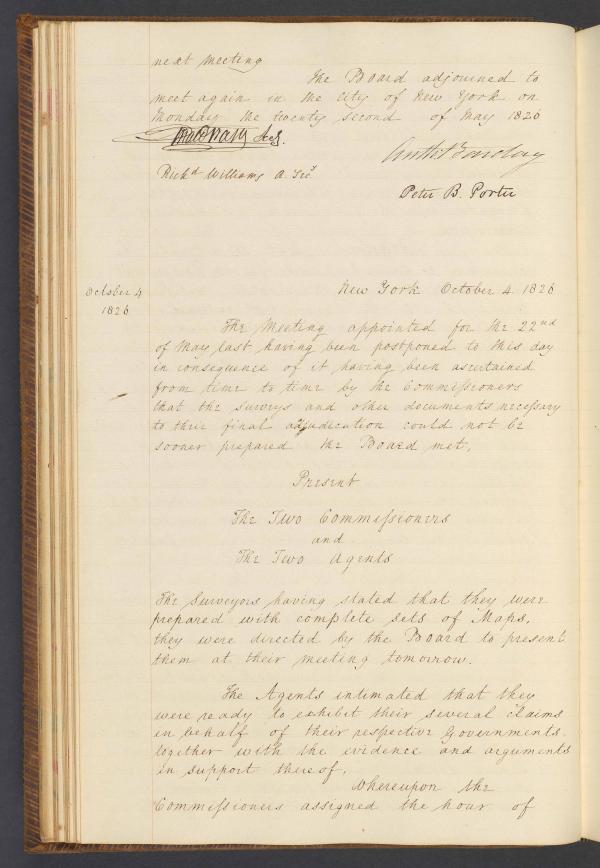 next Meeting
The Board adjourned to
meet again in the City of New York on
Monday the twenty second of May 1826
Secy.
Anth: Barclay
Richd Williams A. Secy
Peter B. Porter
October 4
1826
New York October 4. 1826
The Meeting appointed for the 22nd
of May last having been postponed to this day
in consequence of it having been ascertained
from time to time by the Commissioners
that the surveys and other documents necessary
to their final adjudication could not be
sooner prepared the Board met.
Present
The Two Commissioners
and
The Two Agents
The Surveyors having stated that they were
prepared with complete sets of Maps,
they were directed by the Board to present
them at their meeting tomorrow.
The Agents intimated that they
were ready to exhibit their several claims
in behalf of their respective Governments.
together with the evidence and arguments
in support thereof.
Whereupon the
Commissioners assigned the hour of